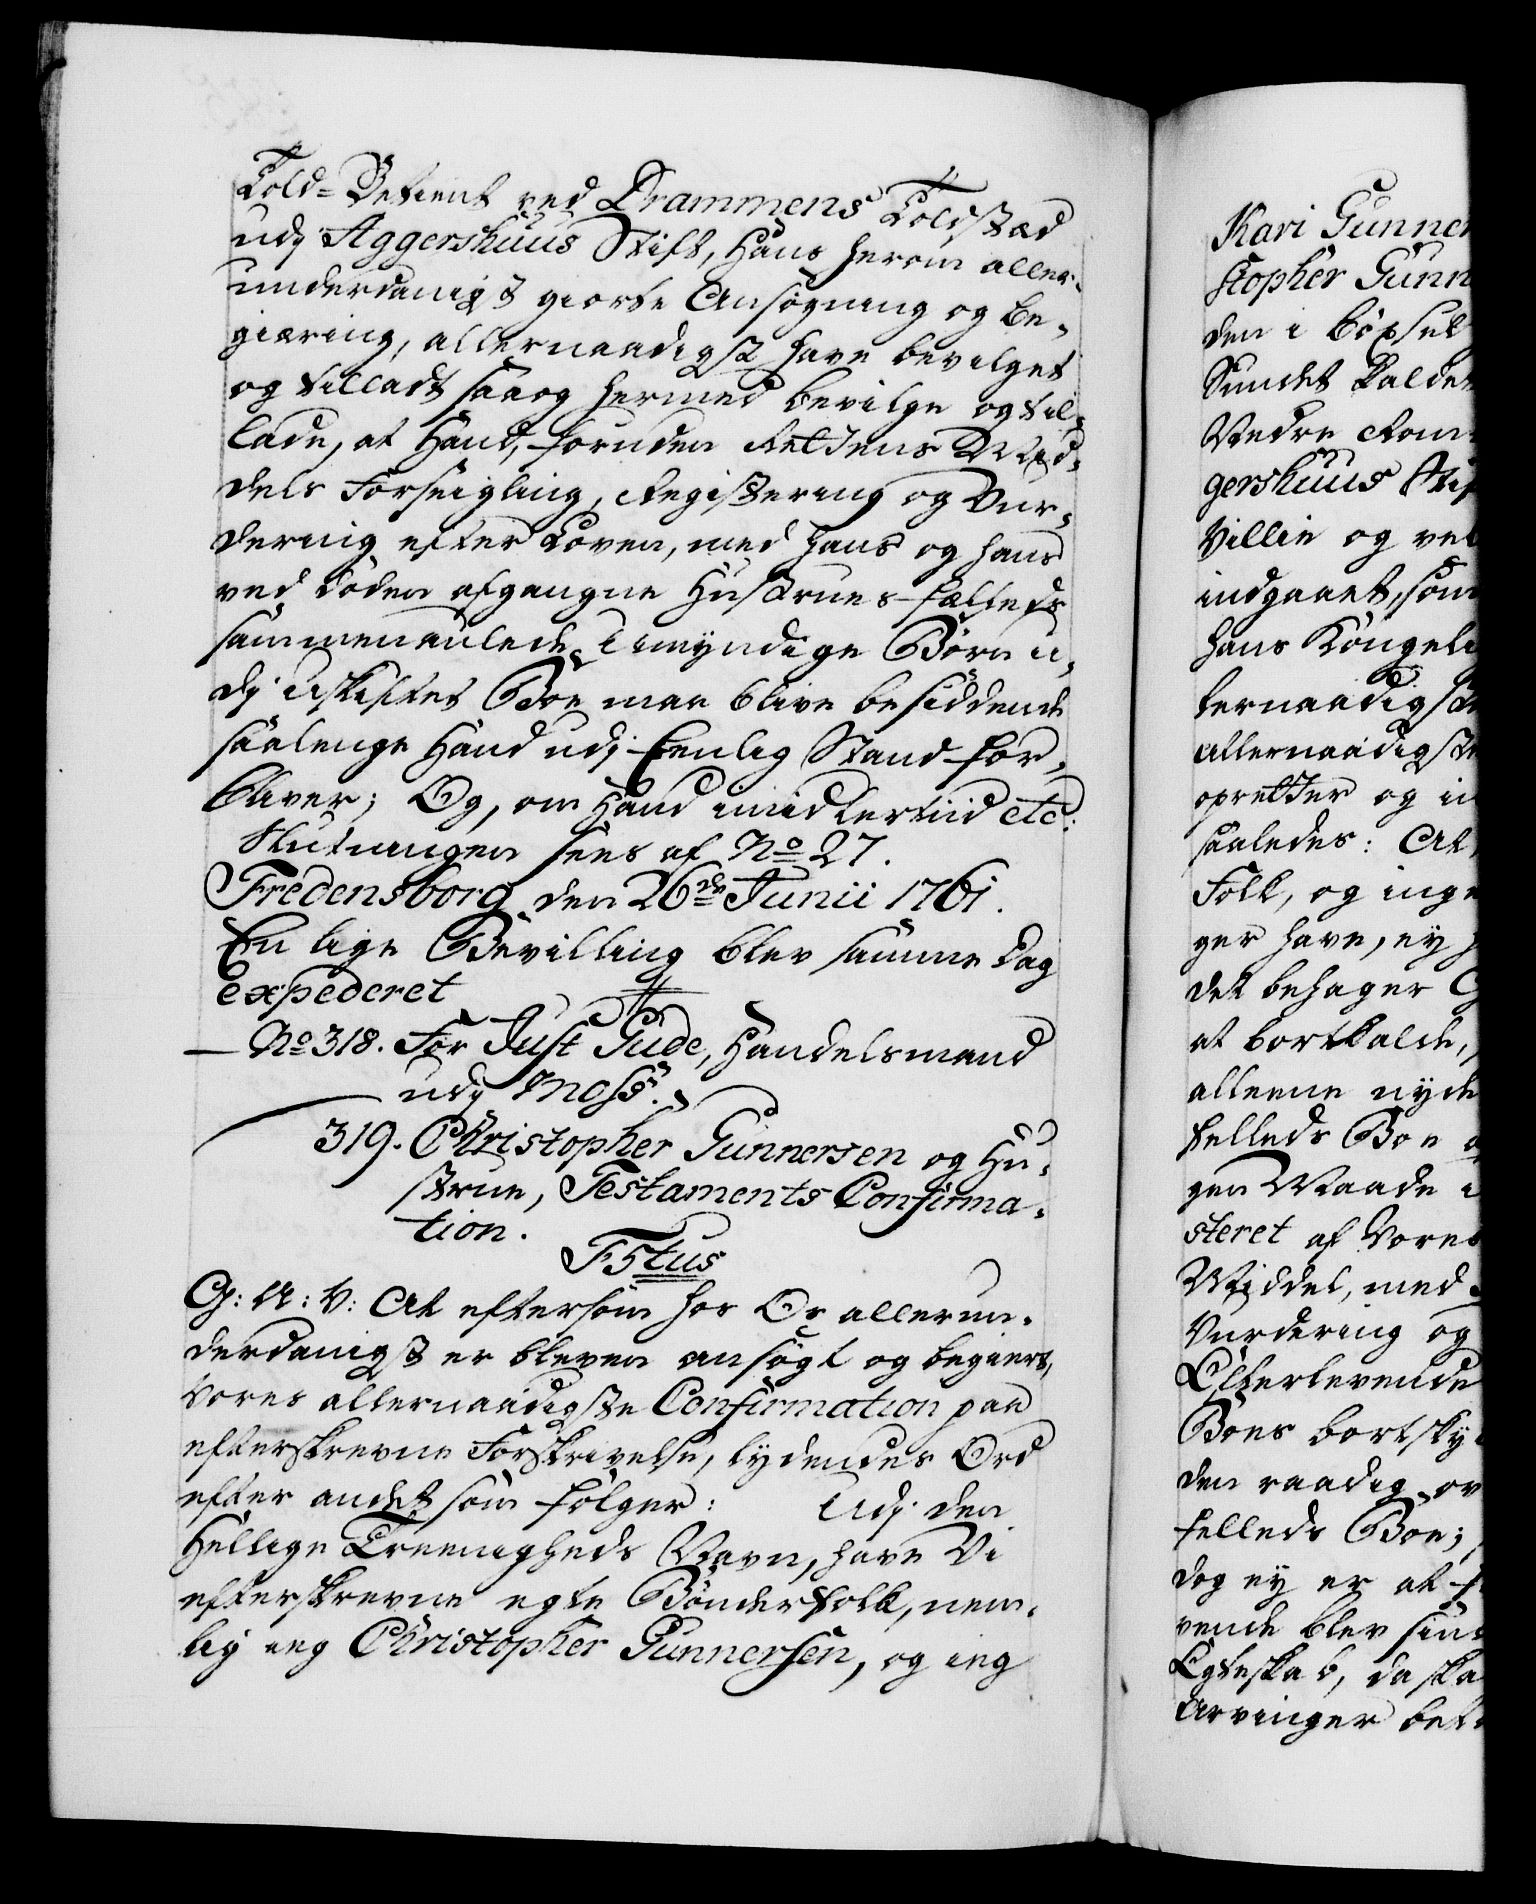 Told-Betient ved Drammens Toldstæd
udj Aggershuus Stift, Hans herom aller-
underdanigst giorte Ansøgning og Be-
giæring, allernaadigst have bevilget
og tilladt saa og hermed bevilge og til-
lade, at Hand, foruden Rettens Mid-
dels Forseigling, Registering og Vur-
dering efter Loven, med hans og hans
ved Døden afgangne Hustrues fælleds
sammenavlede Umyndige Børn u-
dj Uskiftet Boe maa blive besiddende
saalenge Hand udj Eenlig Stand for-
bliver; Og, om Hand imidlertiid etc:
Slutningen sees af No 27.
Fredensborg den 26de Junii 1761.
En lige Bevilling blev samme Dag
expederet
No 318. For Just Gude, Handelsmand
udj Moss.
319. Christopher Gunnersen og Hu-
strue, Testaments Confirma-
tion.
F5tus
G: A: V: At eftersom hos Os allerun-
derdanigst er bleven ansøgt og begiert,
Vores allernaadigste Confirmation paa
efterskrevne Forskrivelse, lydendes Ord
efter andet som følger: Udj den
Hellige Treenigheds Navn, have Vi
efterskrevne egte Bønderfolk, nem-
lig ieg Christopher Gunnersen, og ieg
Kari Gunner
stopher Gunn
den i
Sundet kaldet
Nedre Rom
gershuus Stif
Villie og vel
indgaaet, som
Hans Kongeli
lernaadigste
Allernaadigste
opretter og in
saaledes: At
Folk, og inge
ger have, ey
det behager G
at bortkalde,
alleene nyde
felleds Boe
gen Maade i
steret af Vores
Middel, med
Vurdering og
Efterlevende
Boes bortsky
den raadig ov
felleds Boe;
dog ey er at
vende blev sin
Egteskab, da ska
Arvinger bet